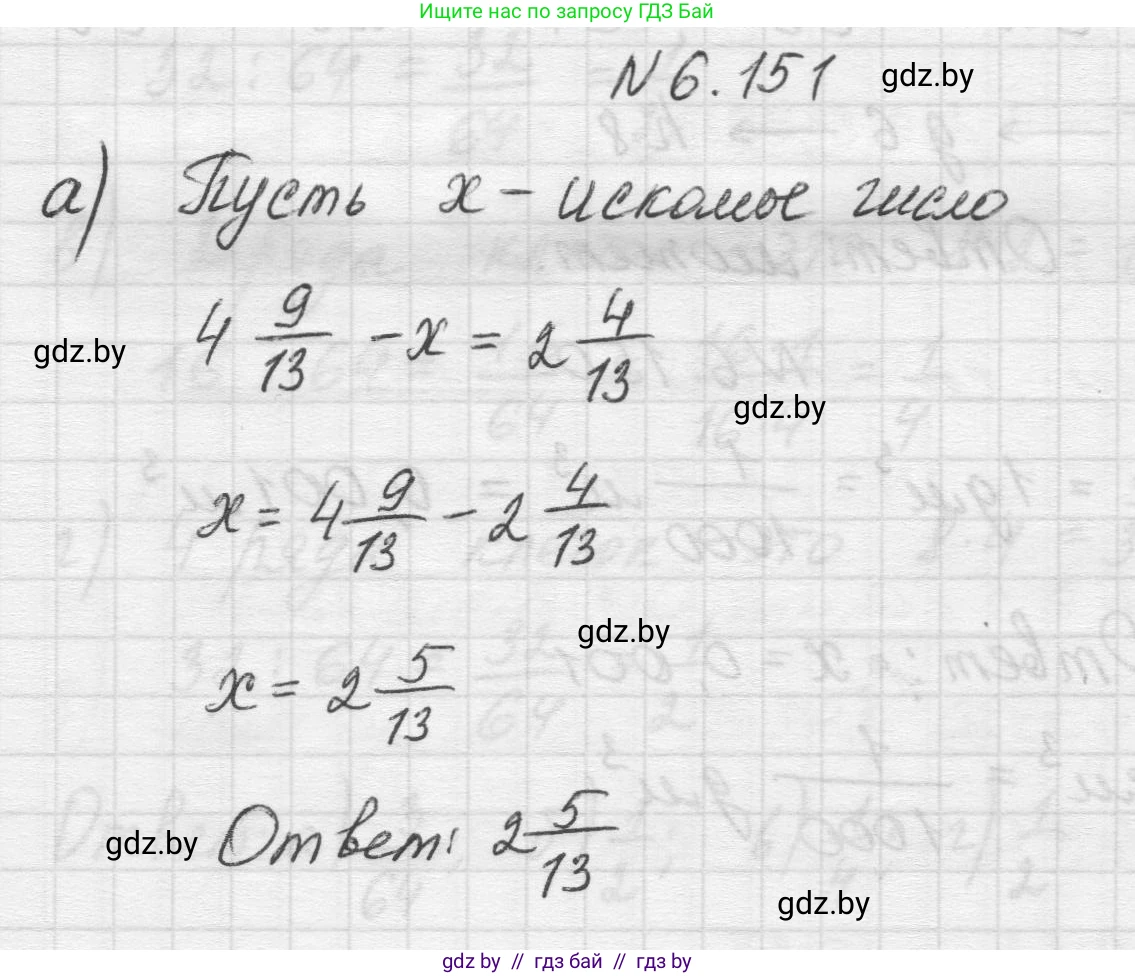 Ищите нас по запросу ГДЗ Бай
№ 6.151 gdz.by
а) Пусть x – искомое число
gdz.by 4 9/13 - x = 2 4/13
gdz.by
x = 4 9/13 - 2 4/13
gdz.by
x = 2 5/13
gdz.by Ответ: 2 5/13
gdz.by
gdz by // гдз бай // гдз by